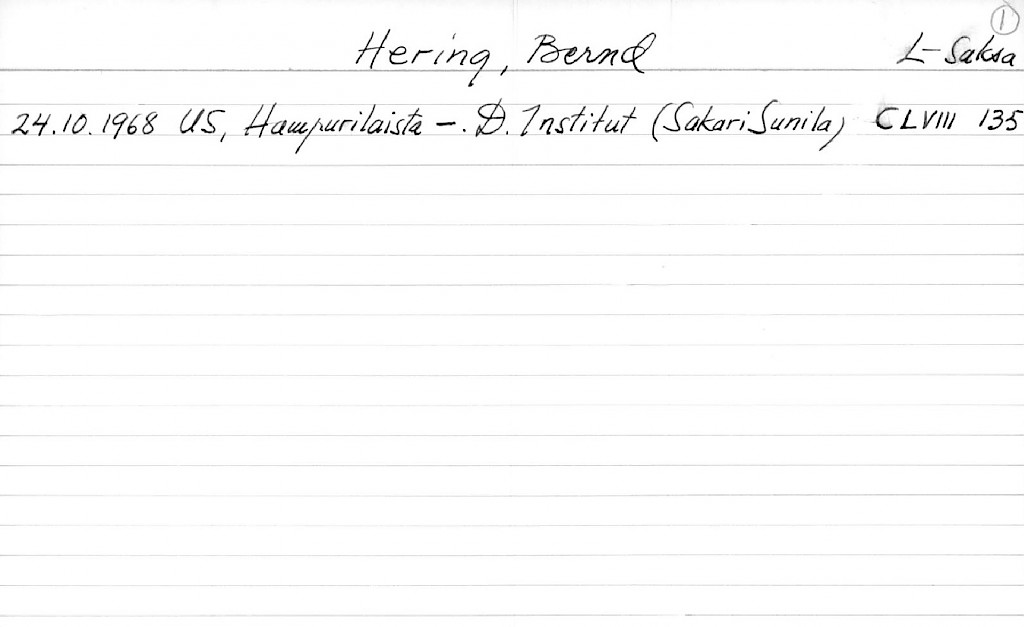 ①
Hering, Bernd L-Saksa
24.10.1968 US, Hampurilaista –. D. Institut (Sakari Sunila) CLVIII 135